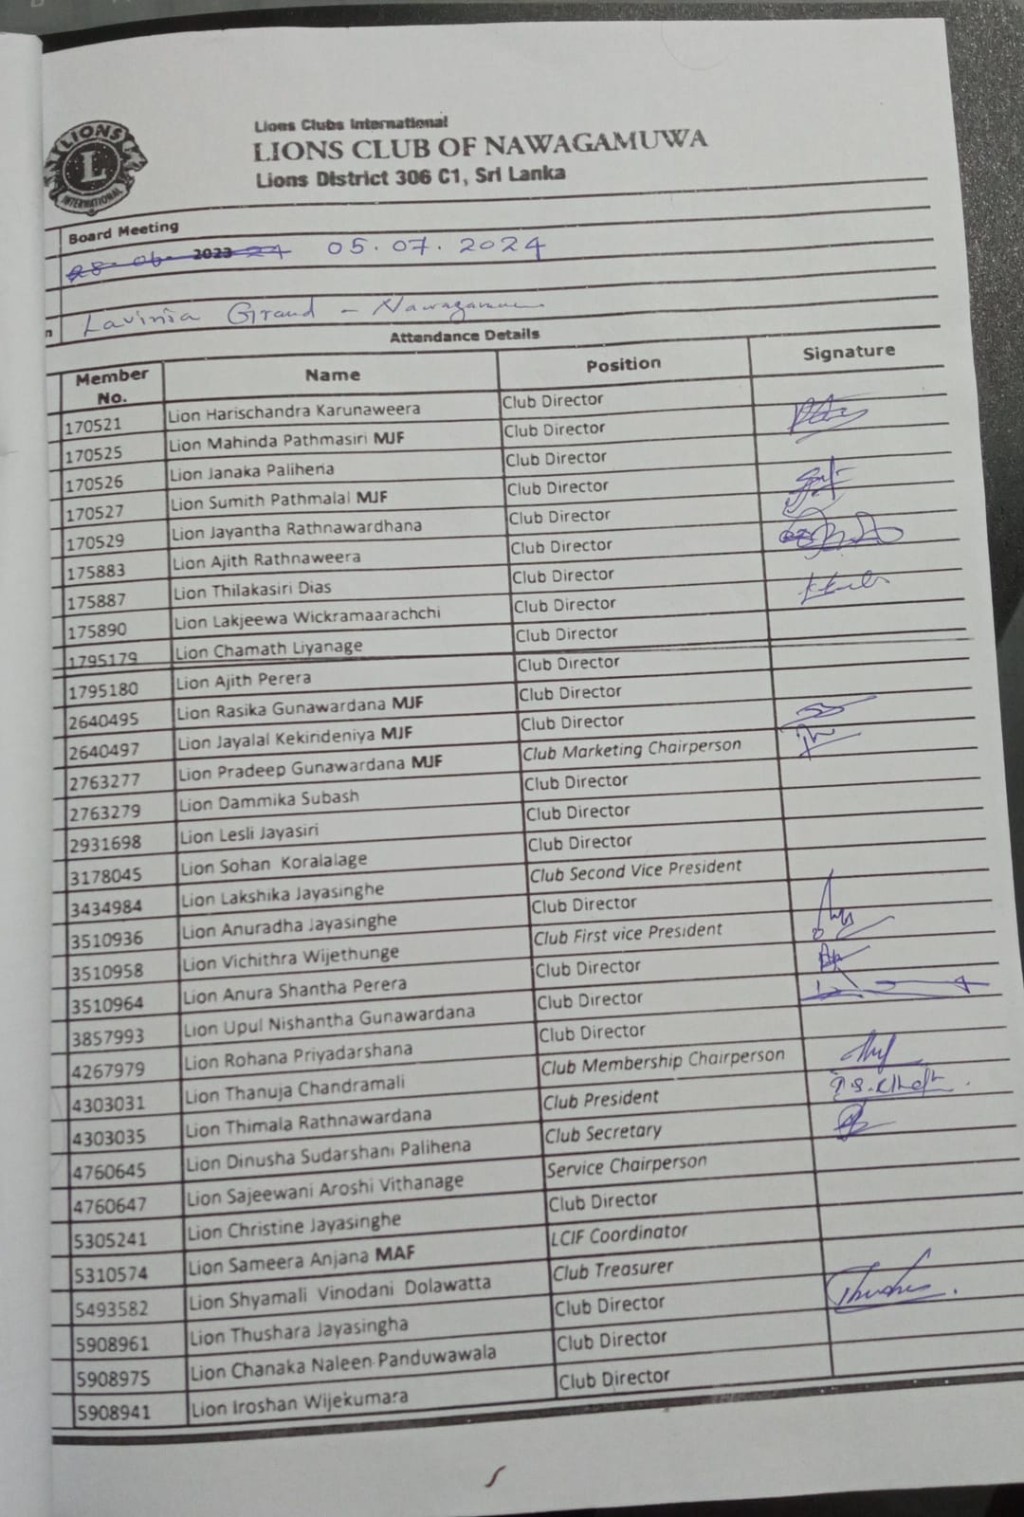 LIONS
L
INTERNATIONAL
Lions Clubs International
LIONS CLUB OF NAWAGAMUWA
Lions District 306 C1, Sri Lanka
Board Meeting
28-06- 2023 24 05.07.2024
Lavinia Grand -
Attendance Details
Member No. Name Position Signature
170521 Lion Harischandra Karunaweera Club Director
170525 Lion Mahinda Pathmasiri MJF Club Director
170526 Lion Janaka Palihena Club Director
170527 Lion Sumith Pathmalal MJF Club Director
170529 Lion Jayantha Rathnawardhana Club Director
175883 Lion Ajith Rathnaweera Club Director
175887 Lion Thilakasiri Dias Club Director
175890 Lion Lakjeewa Wickramaarachchi Club Director
1795179 Lion Chamath Liyanage Club Director
1795180 Lion Ajith Perera Club Director
2640495 Lion Rasika Gunawardana MJF Club Director
2640497 Lion Jayalal Kekirideniya MJF Club Director
2763277 Lion Pradeep Gunawardana MJF Club Marketing Chairperson
2763279 Lion Dammika Subash Club Director
2931698 Lion Lesli Jayasiri Club Director
3178045 Lion Sohan Koralalage Club Director
3434984 Lion Lakshika Jayasinghe Club Second Vice President
3510936 Lion Anuradha Jayasinghe Club Director
3510958 Lion Vichithra Wijethunge Club First vice President
3510964 Lion Anura Shantha Perera Club Director
3857993 Lion Upul Nishantha Gunawardana Club Director
4267979 Lion Rohana Priyadarshana Club Director
4303031 Lion Thanuja Chandramali Club Membership Chairperson
4303035 Lion Thimala Rathnawardana Club President
4760645 Lion Dinusha Sudarshani Palihena Club Secretary
4760647 Lion Sajeewani Aroshi Vithanage Service Chairperson
5305241 Lion Christine Jayasinghe Club Director
5310574 Lion Sameera Anjana MAF LCIF Coordinator
5493582 Lion Shyamali Vinodani Dolawatta Club Treasurer
5908961 Lion Thushara Jayasingha Club Director
5908975 Lion Chanaka Naleen Panduwawala Club Director
5908941 Lion Iroshan Wijekumara Club Director